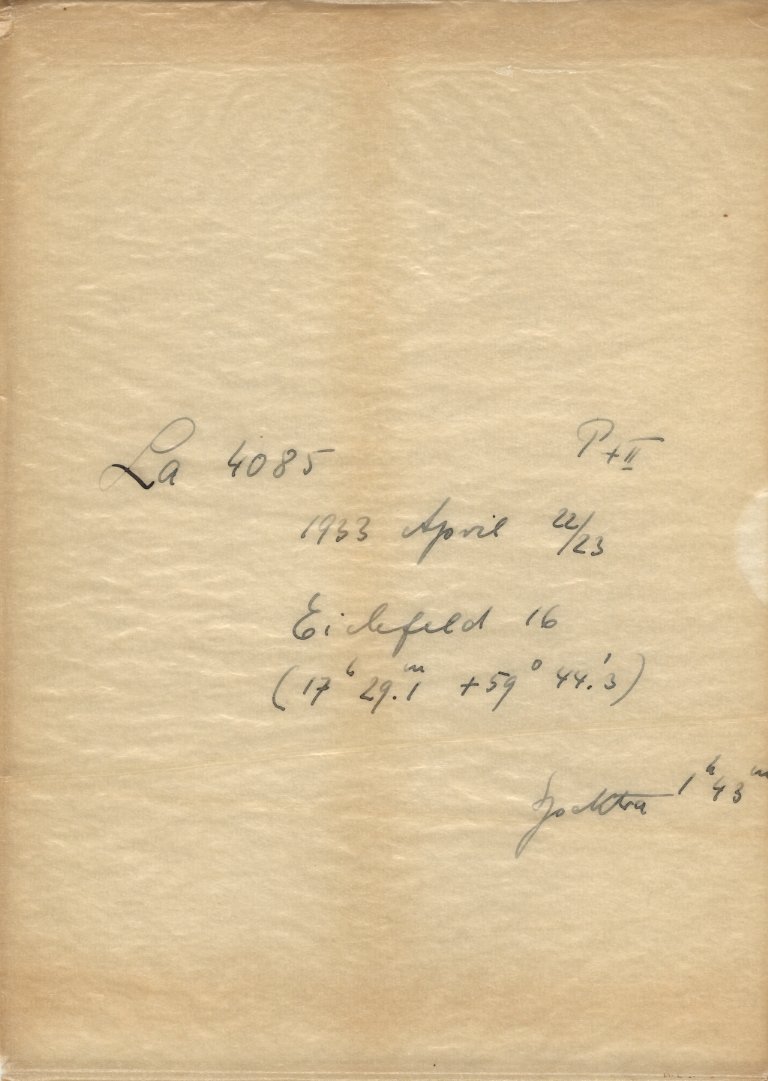 La 4085 P+II
1933 April 22/23
Eichfeld 16
(17ʰ 29.ᵐ1 +59° 44.'3)
Spektra 1ʰ 43ᵐ